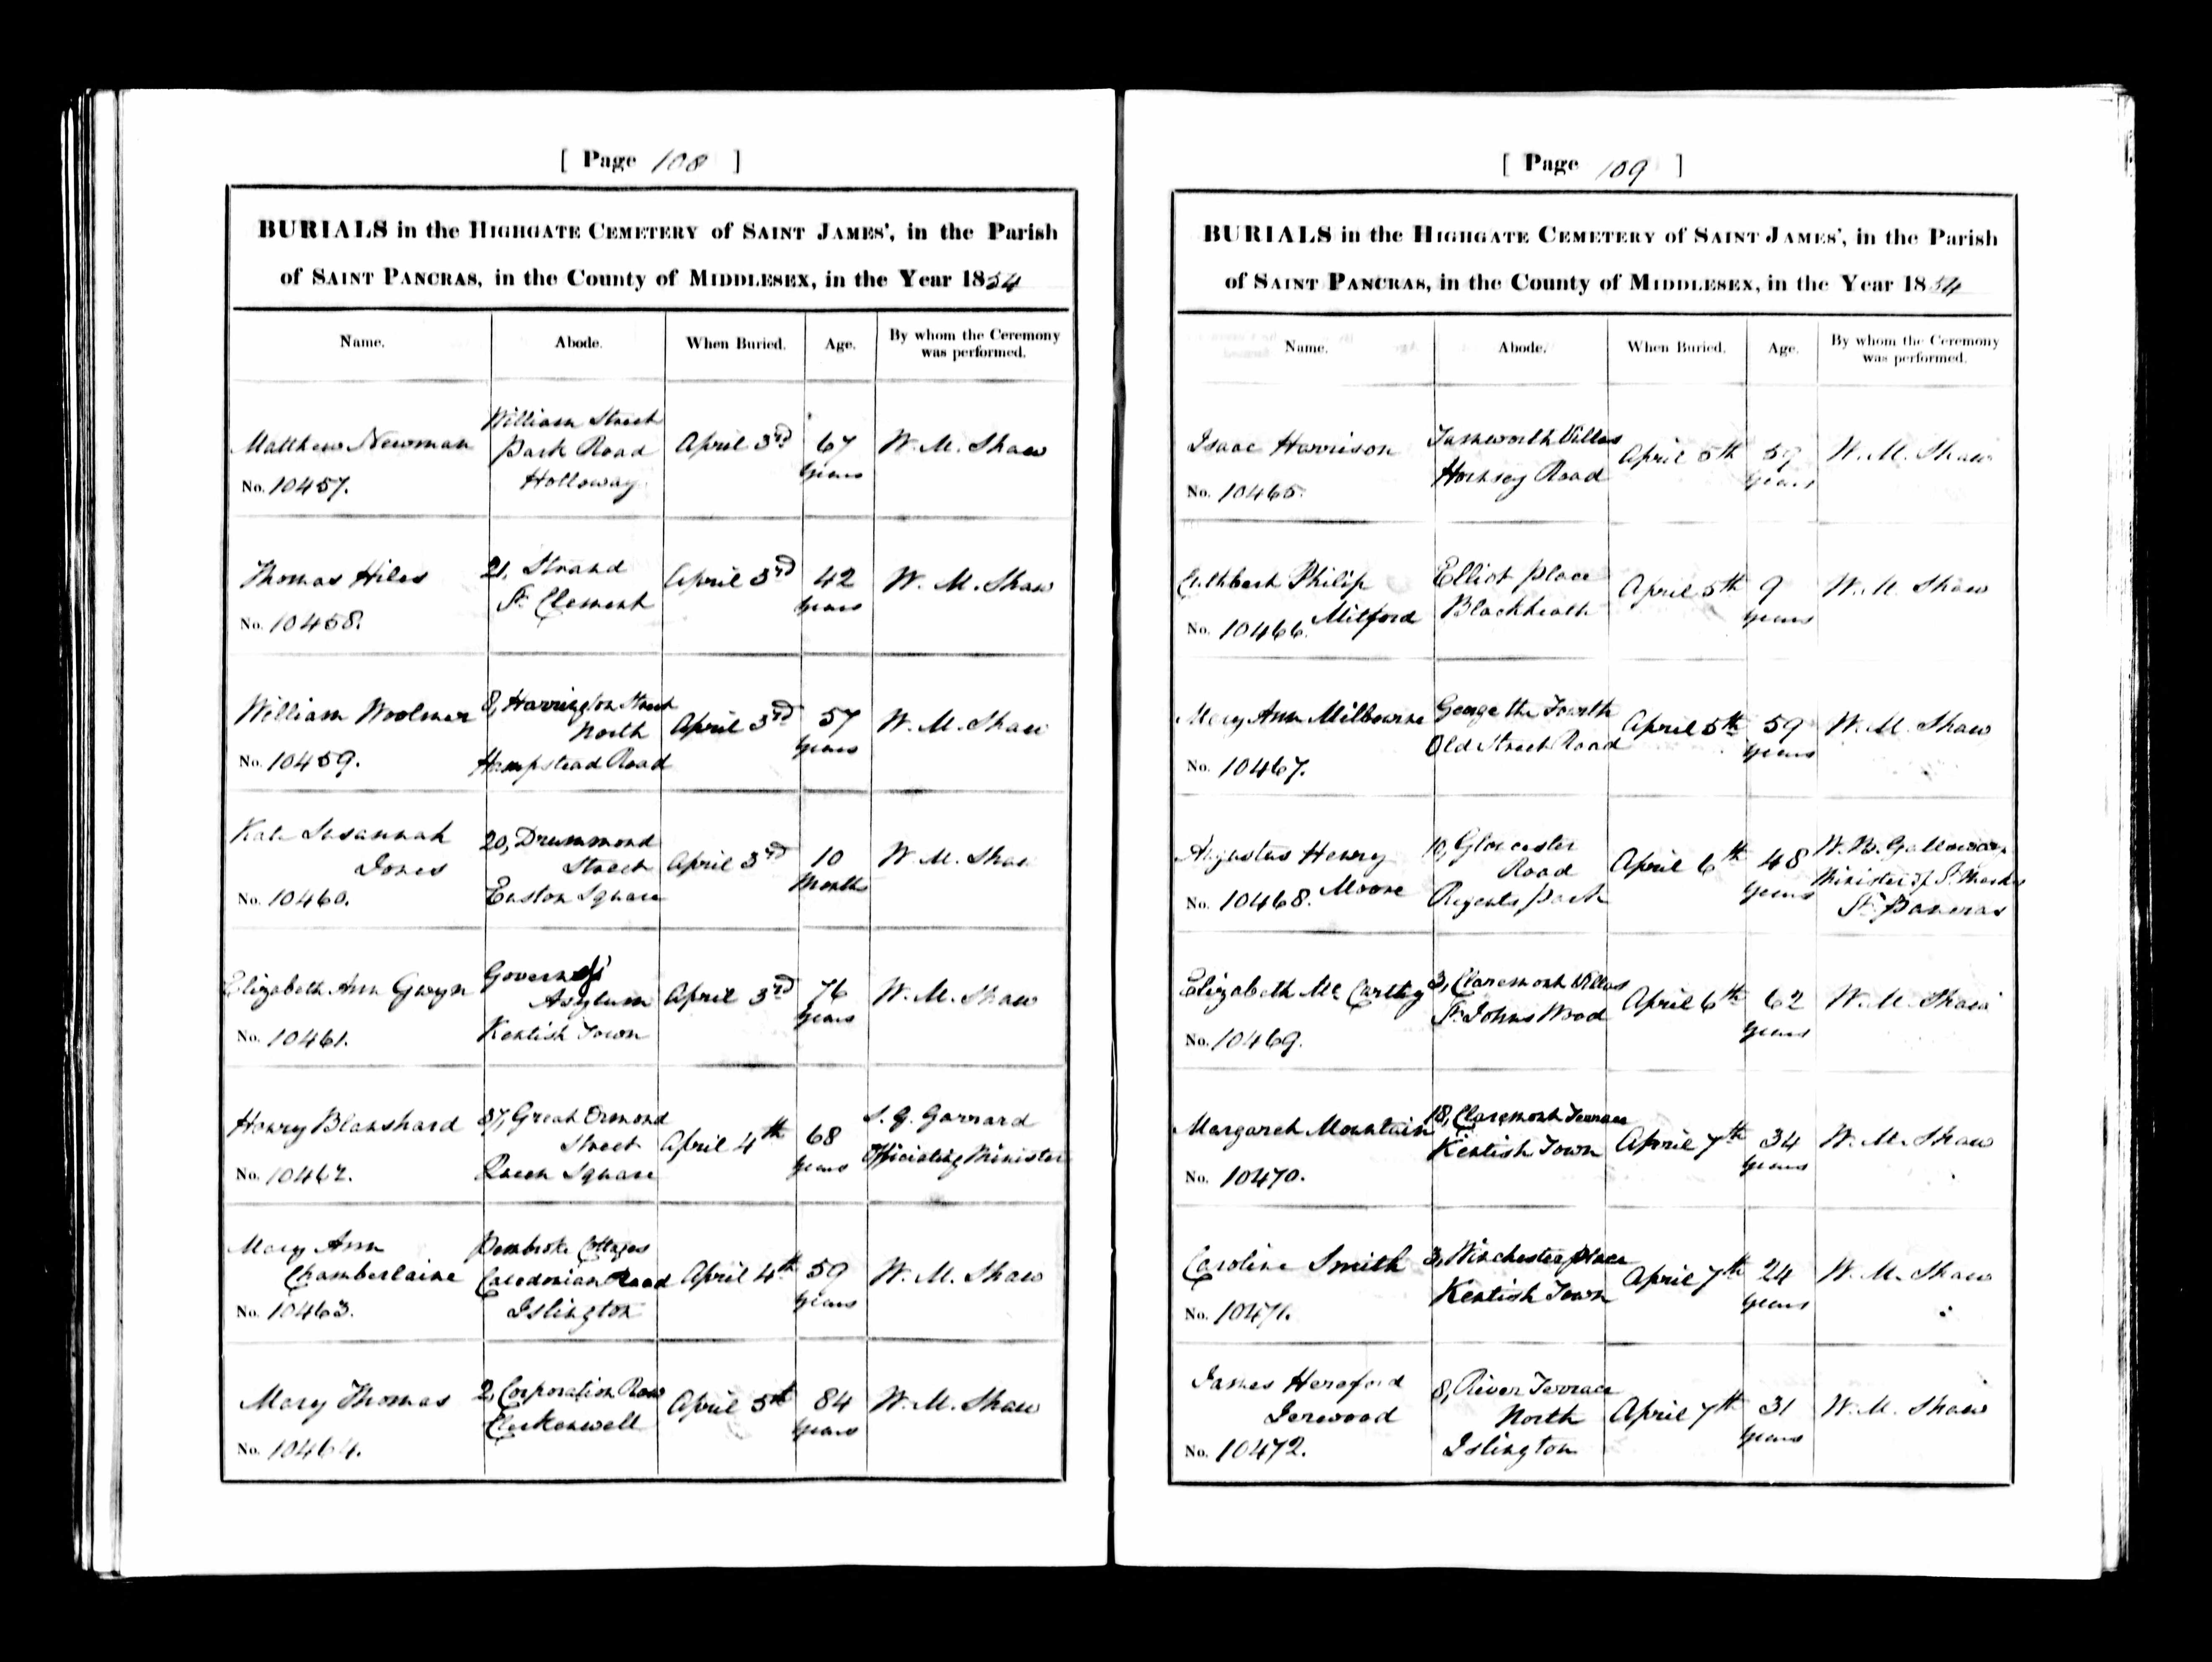 [ Page 108 ]
BURIALS in the HIGHGATE CEMETERY of SAINT JAMES', in the Parish
of SAINT PANCRAS, in the County of MIDDLESEX, in the Year 1854
Name. Abode. When Buried. Age. By whom the Ceremony was performed.
Matthew Newman
No. 10457.
William Street
Park Road
Holloway
April 3rd
67
years
W. M. Shaw
Thomas Hiles
No. 10458.
21, Strand
St. Clement
April 3rd
42
years
W. M. Shaw
William Woolmer
No. 10459.
8, Harrington Street
North
Hampstead Road
April 3rd
57
years
W. M. Shaw
Kate Susannah
Jones
No. 10460.
20, Drummond
Street
Euston Square
April 3rd
10
Months
W. M. Shaw
Elizabeth Ann Gwyn
No. 10461.
Governess
Asylum
Kentish Town
April 3rd
76
years
W. M. Shaw
Henry Blanshard
No. 10462.
37, Great Ormond
Street
Queen Square
April 4th
68
years
S. G. Garrard
Officiating Minister
Mary Ann
Chamberlaine
No. 10463.
Pembroke Cottages
Caledonian Road
Islington
April 4th
59
years
W. M. Shaw
Mary Thomas
No. 10464.
2, Corporation Row
Clerkenwell
April 5th
84
years
W. M. Shaw
[ Page 109 ]
BURIALS in the HIGHGATE CEMETERY of SAINT JAMES', in the Parish
of SAINT PANCRAS, in the County of MIDDLESEX, in the Year 1854
Name. Abode. When Buried. Age. By whom the Ceremony was performed.
Isaac Harrison
No. 10465.
Tamworth Villas
Hornsey Road
April 5th
59
years
W. M. Shaw
Cuthbert Philip
Mitford
No. 10466.
Elliot place
Blackheath
April 5th
9
years
W. M. Shaw
Mary Ann Milbourne
No. 10467.
George the Fourth
Old Street Road
April 5th
59
years
W. M. Shaw
Augustus Henry
Moore
No. 10468.
10, Glocester
Road
Regents park
April 6th
48
years
W. B. Galloway
Minister of St. Marks
St. Pancras
Elizabeth Mc Carthy
No. 10469.
3, Claremont Villas
St. Johns Wood
April 6th
62
years
W. M. Shaw
Margaret Mountain
No. 10470.
18, Claremont Terrace
Kentish Town
April 7th
34
years
W. M. Shaw
Caroline Smith
No. 10471.
3, Winchester place
Kentish Town
April 7th
24
years
W. M. Shaw
James Hereford
Jerwood
No. 10472.
8, River Terrace
North
Islington
April 7th
31
years
W. M. Shaw